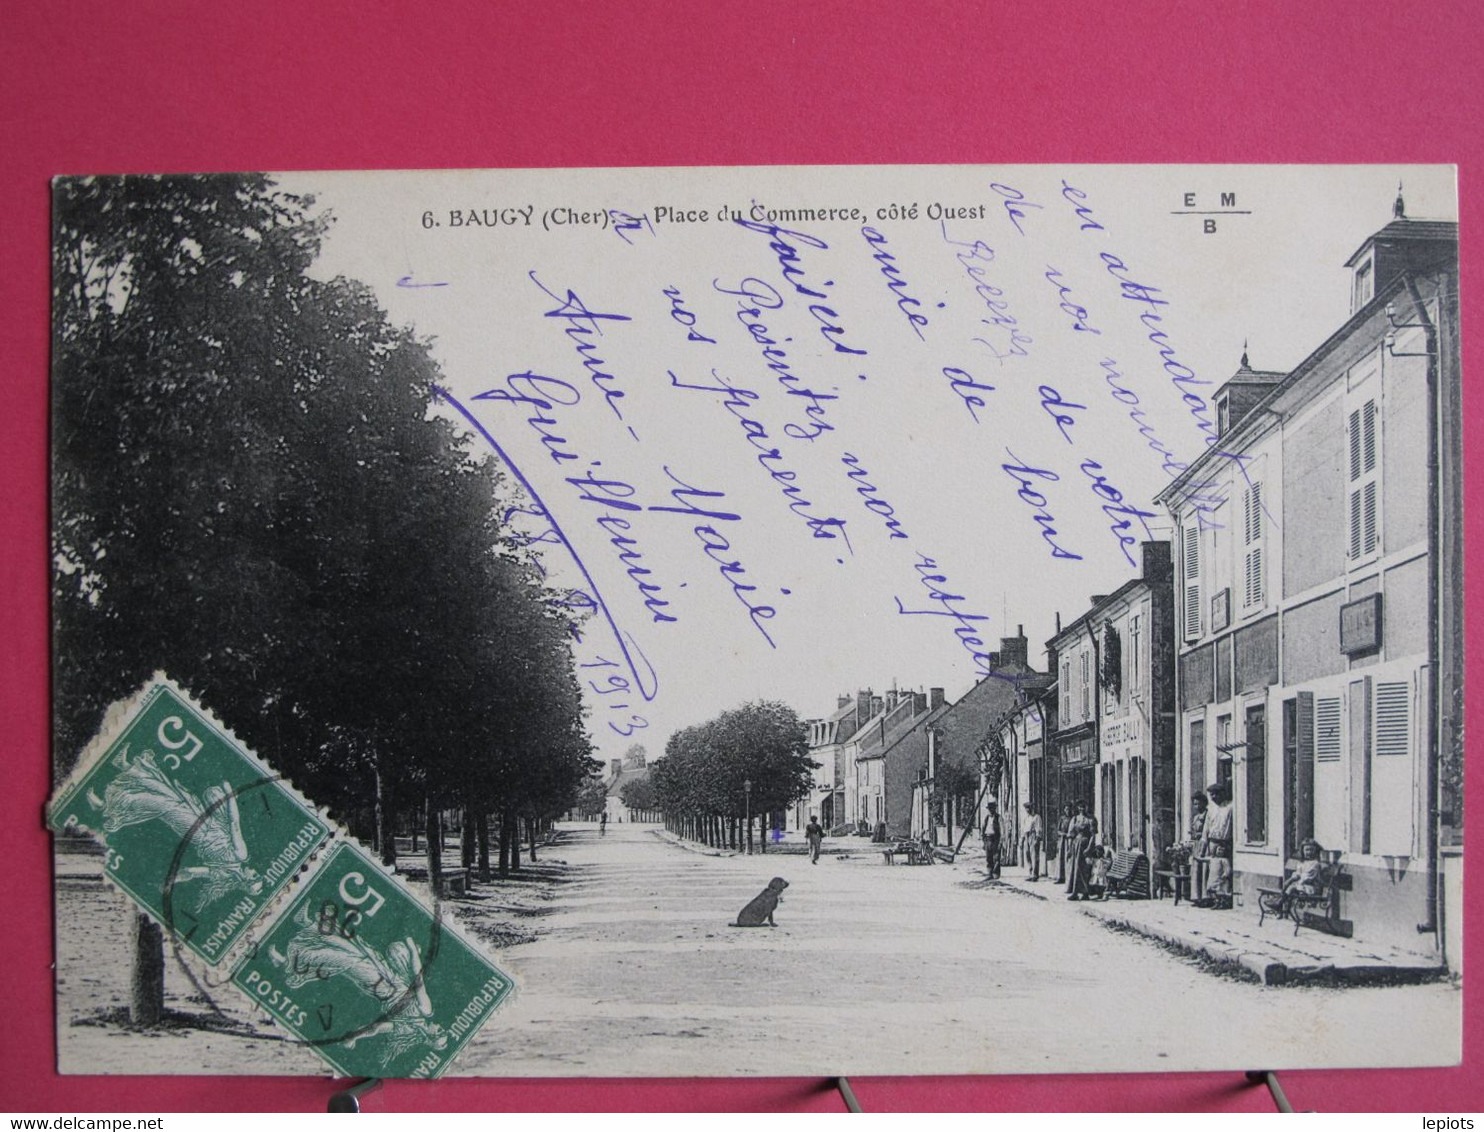 6. BAUGY (Cher). — Place du Commerce, côté Ouest
E M
B
en attendant
de vos nouvelles
Recevez de votre
amie de bons
baisers
Présentez mon respect
à vos parents.
Anne-Marie
Guillemin
1913
5c
POSTES
RÉPUBLIQUE FRANÇAISE
5c
POSTES
RÉPUBLIQUE FRANÇAISE
28
AUBERGE
delcampe.net
lepiots